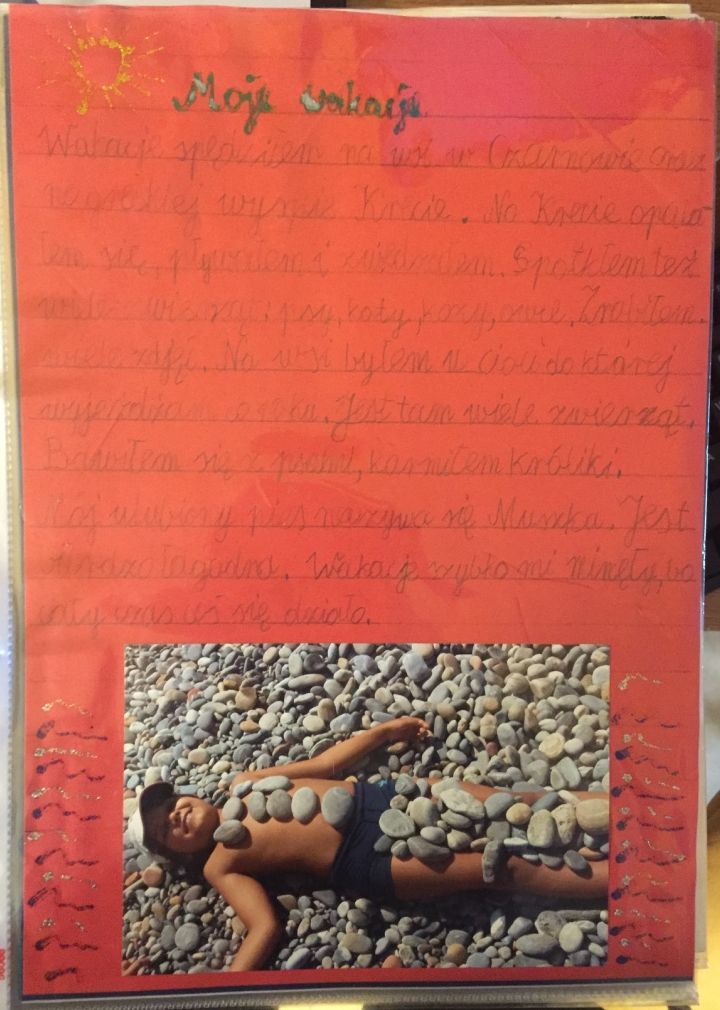 Moje wakacje
Wakacje spędziłem na wsi w Czarnowie oraz
na greckiej wyspie Krecie. Na Krecie opala
łem się, pływałem i zwiedzałem. Spotkłem też
wiele zwierząt: psy, koty, kozy, owce. Zrobiłem
wiele zdjęć. Na wsi byłem u cioci do której
wyjeżdżam co roku. Jest tam wiele zwierząt.
Bawiłem się z psami, karmiłem króliki.
Mój ulubiony pies nazywa się Muszka. Jest
bardzo łagodna. Wakacje szybko mi minęły, bo
cały czas coś się działo.